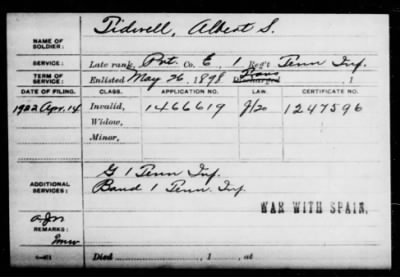 Tidwell, Albert S.
NAME OF SOLDIER:
SERVICE: Late rank, Pvt. Co. E, 1 Reg't Tenn Inf.
TERM OF SERVICE: Enlisted May 26, 1898 Discharged, 1
DATE OF FILING. CLASS. APPLICATION NO. LAW. CERTIFICATE NO.
1922 Apr. 14 Invalid, 1466619 1247596
Widow,
Minor,
ADDITIONAL SERVICES:
G 1 Tenn Inf.
Band 1 Tenn. Inf.
WAR WITH SPAIN.
REMARKS:
Died, 1, at